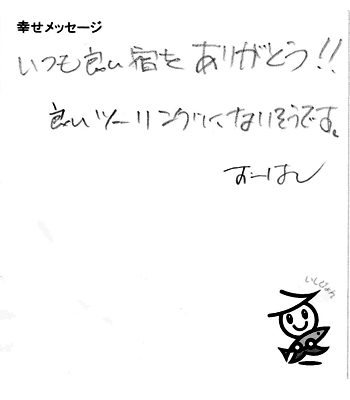 幸せメッセージ
いつも良い宿をありがとう!!
良いツーリングになりそうです。
すーはん